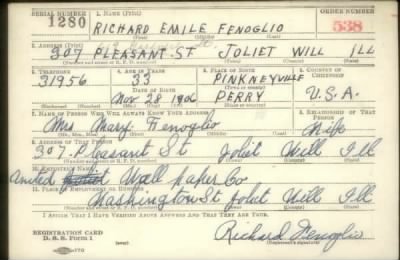 SERIAL NUMBER 1. NAME (Print) ORDER NUMBER
1280 RICHARD EMILE FENOGLIO 538
(First) (Middle) (Last)
2. ADDRESS (Print)
307 PLEASANT ST JOLIET WILL ILL
(Number and street or R. F. D. number) (Town) (County) (State)
3. TELEPHONE 4. AGE IN YEARS 5. PLACE OF BIRTH 6. COUNTRY OF CITIZENSHIP
31956 33 PINKNEYVILLE
DATE OF BIRTH (Town or county)
Nov 28 1906 PERRY U.S.A.
(Mo.) (Day) (Yr.) (State or country)
7. NAME OF PERSON WHO WILL ALWAYS KNOW YOUR ADDRESS 8. RELATIONSHIP OF THAT PERSON
Mrs Mary Fenoglio Wife
(Mr., Mrs., Miss) (First) (Middle) (Last)
9. ADDRESS OF THAT PERSON
307 Pleasant St Joliet Will Ill
(Number and street or R. F. D. number) (Town) (County) (State)
10. EMPLOYER'S NAME
United Wall Paper Co
11. PLACE OF EMPLOYMENT OR BUSINESS
Washington St Joliet Will Ill
(Number and street or R. F. D. number) (Town) (County) (State)
I AFFIRM THAT I HAVE VERIFIED ABOVE ANSWERS AND THAT THEY ARE TRUE.
REGISTRATION CARD
D. S. S. Form 1 (over) Richard Fenoglio
(Registrant's signature)